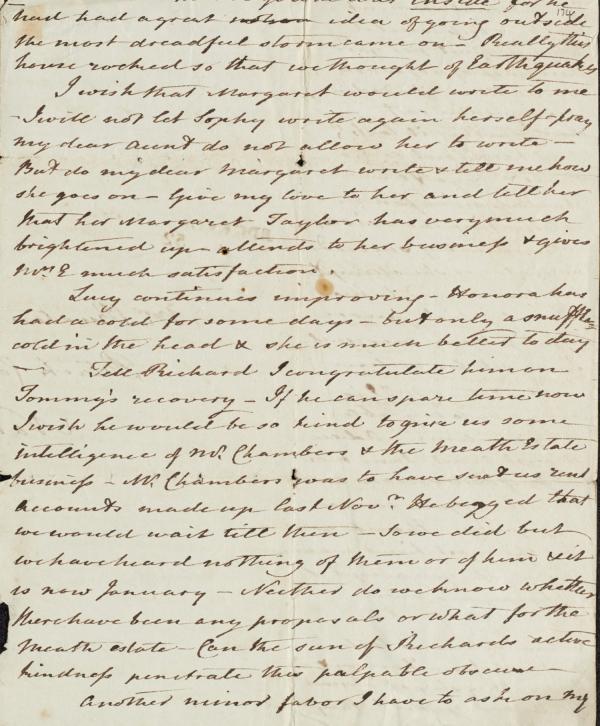 inside for he
had had a great notion idea of going outside
the most dreadful storm came on – Really this
house rocked so that we thought of Earthquakes
I wish that Margaret would write to me
– I will not let Sophy write again herself – pray
my dear aunt do not allow her to write –
But do my dear Margaret write & tell me how
she goes on – Give my love to her and tell her
that her Margaret Taylor has very much
brightened up – attends to her business & gives
Mrs. E much satisfaction.
Lucy continues improving – Honora has
had a cold for some days – but only a snuffling
cold in the head & she is much better to day
– Tell Richard I congratulate him on
Tommy's recovery – If he can spare time now
I wish he would be so kind to give us some
intelligence of Mr. Chambers & the Meath Estate
business – Mr. Chambers was to have sent us rent
accounts made up last Novr. He begged that
we would wait till then – So we did but
we have heard nothing of them or of him & it
is now January – Neither do we know whether
there have been any proposals or what for the
Meath estate – Can the sun of Richards active
kindness penetrate this palpable obscure –
Another minor favor I have to ask on my